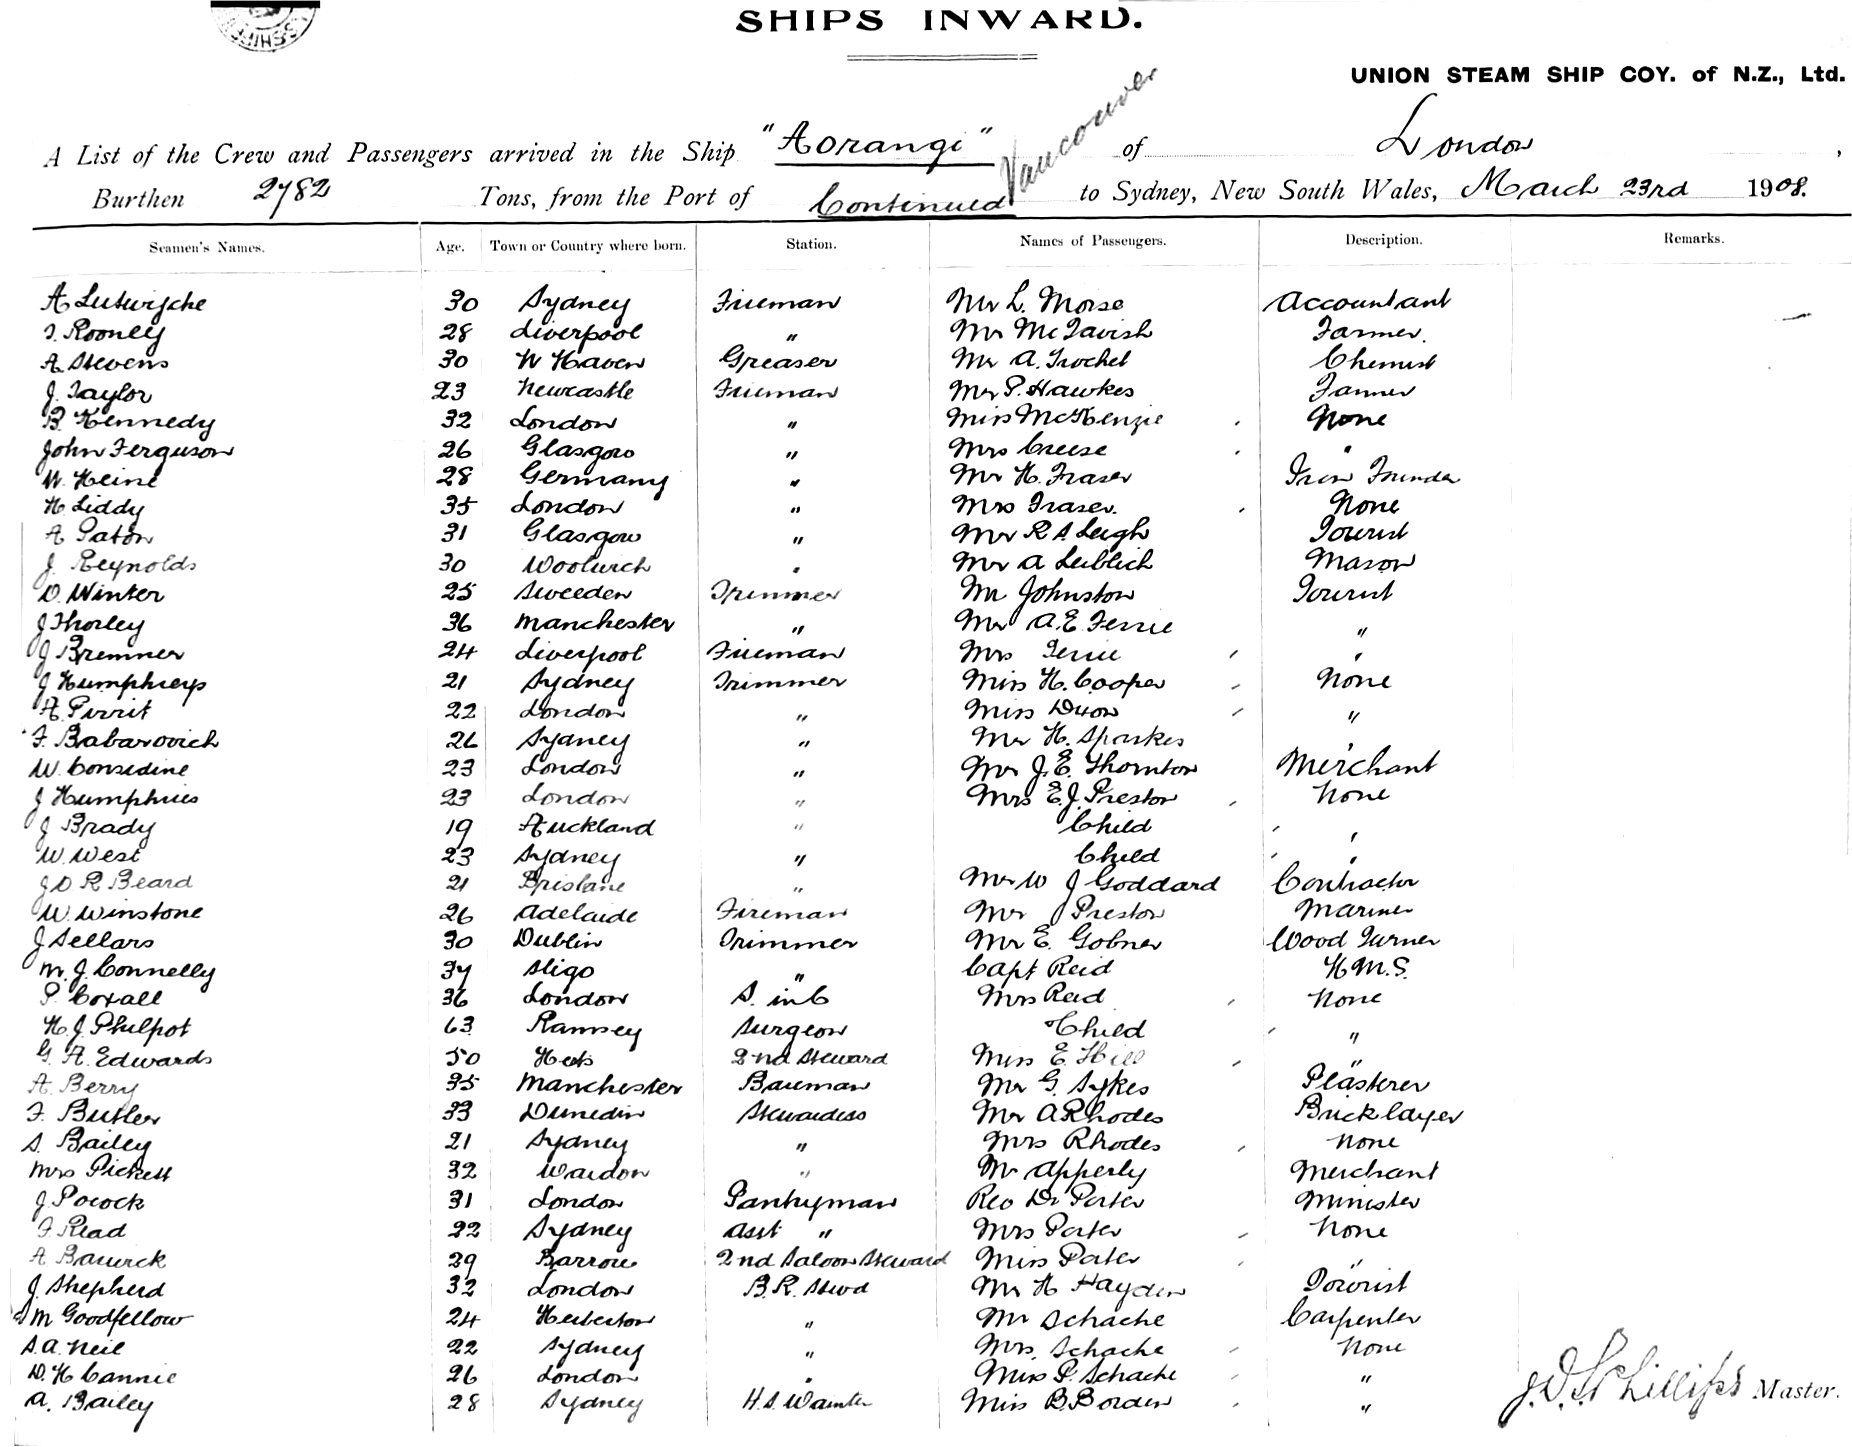 SHIPS INWARD.
UNION STEAM SHIP COY. of N.Z., Ltd.
A List of the Crew and Passengers arrived in the Ship "Aorangi" of London,
Burthen 2782 Tons, from the Port of Vancouver Continued to Sydney, New South Wales, March 23rd 1908.
Seamen's Names. Age. Town or Country where born. Station. Names of Passengers. Description. Remarks.
A Lutwyche 30 Sydney Fireman Mr L. Morse Accountant
J. Rooney 28 Liverpool " Mr McTavish Farmer.
A Stevens 30 W Haven Greaser Mr A. Trochel Chemist
J. Taylor 23 Newcastle Fireman Mr P. Hawkes Farmer
B. Kennedy 32 London " Miss McKenzie None
John Ferguson 26 Glasgow " Mrs Creese "
W. Heine 28 Germany " Mr H. Fraser Iron Founder
H. Liddy 35 London " Mrs Fraser. None
A Paton 31 Glasgow " Mr R A Leigh Tourist
J. Reynolds 30 Woolwich " Mr A Leiblich Mason
D. Winter 25 Sweeden Trimmer Mr Johnston Tourist
J Thorley 36 Manchester " Mr A.E. Ferrie "
J Bremner 24 Liverpool Fireman Mrs Ferrie "
J Humphreys 21 Sydney Trimmer Miss H. Cooper None
A. Pirrit 22 London " Miss Dixon "
F. Babarovich 26 Sydney " Mr H. Sparkes "
W. Considine 23 London " Mr J.E. Thornton Merchant
J Humphries 23 London " Mrs E.J. Preston None
J Brady 19 Auckland " Child "
W. West 23 Sydney " Child "
J D R Beard 21 Brisbane " Mr W J Goddard Contractor
W. Winstone 26 Adelaide Fireman Mr J Preston Mariner
J Sellars 30 Dublin Trimmer Mr E. Gobner Wood Turner
M. J. Connelly 37 Sligo " Capt Reid H.M.S.
P. Coxall 36 London S. in C Mrs Reid None
H. J. Philpot 63 Ramsey Surgeon Child "
G. A. Edwards 50 Herts 2nd Steward Miss E. Hill "
A. Berry 35 Manchester Barman Mr G. Sykes Plasterer
F. Butler 33 Dunedin Stewardess Mr A Rhodes Bricklayer
S. Bailey 21 Sydney " Mrs Rhodes None
Mrs Pickett 32 Wardon " Mr Apperly Merchant
J. Pocock 31 London Pantryman Rev Dr Porter Minister
F. Read 22 Sydney Asst " Mrs Porter None
A Barwick 29 Barrow 2nd Saloon Steward Miss Porter "
J. Shepherd 32 London B.R. Stewd Mr H Hayden Tourist
M Goodfellow 24 Herberton " Mr Schache Carpenter
S. A. Neil 22 Sydney " Mrs. Schache None
D. H Cannie 26 London " Miss P. Schache "
A. Bailey 28 Sydney H.S. Waiter Miss B. Borden "
J.D.S. Phillips Master.